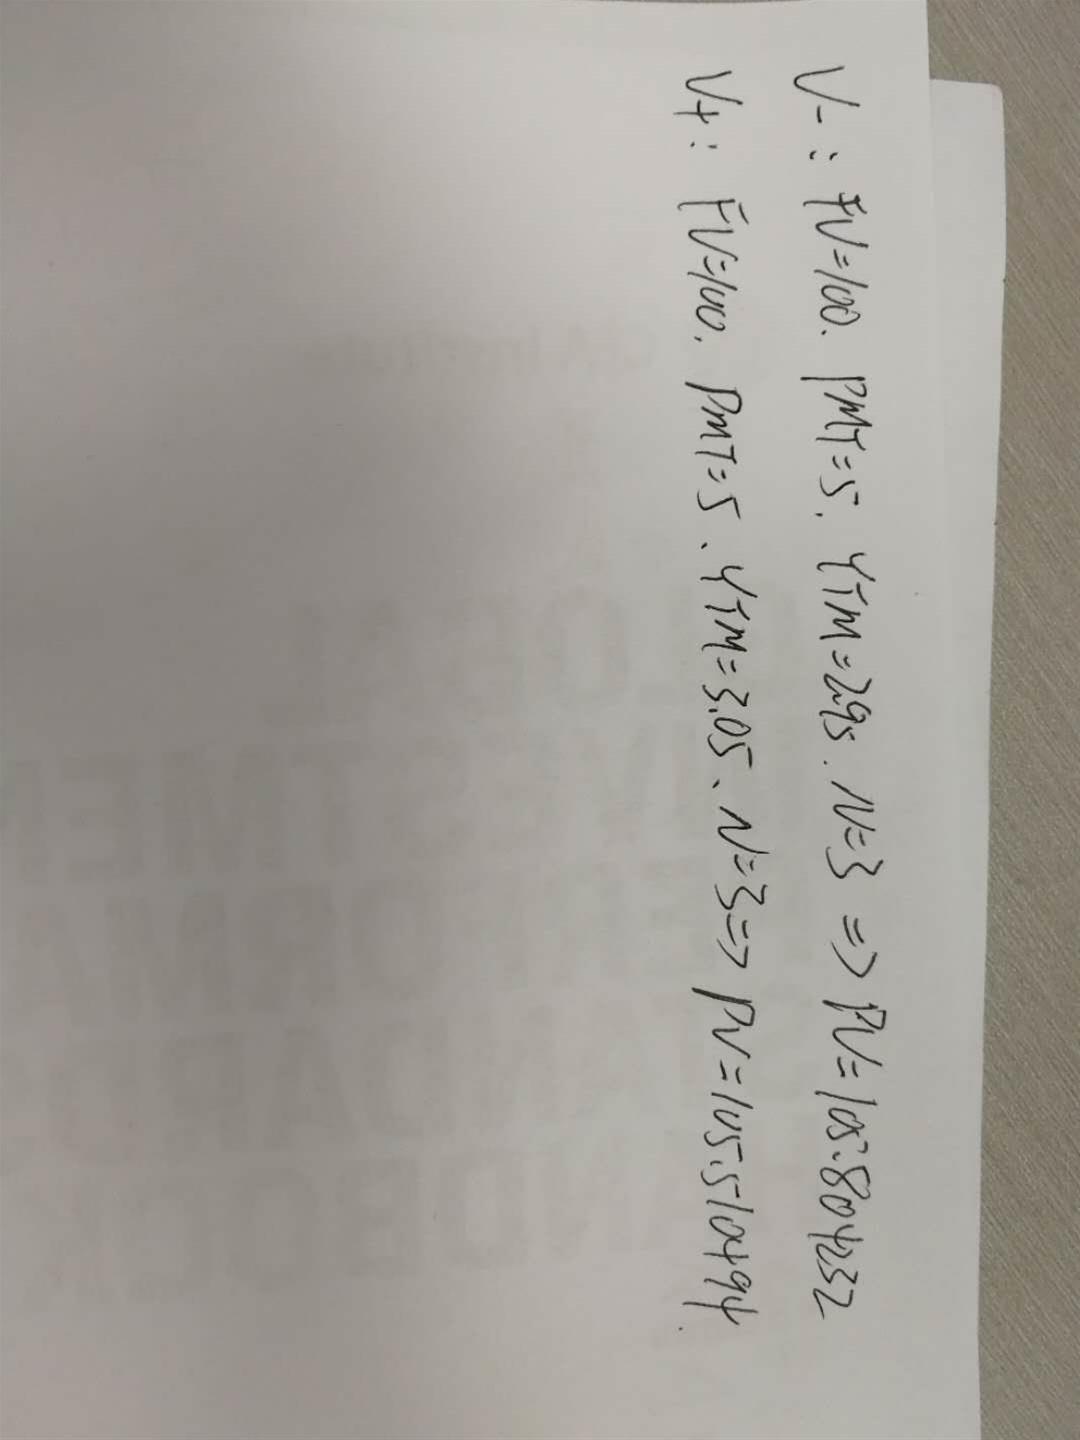 V- : FV=100. PMT=5. YTM=2.95. N=3 => PV=105.804232
V+ : FV=100. PMT=5. YTM=3.05. N=3=> PV=105.510494